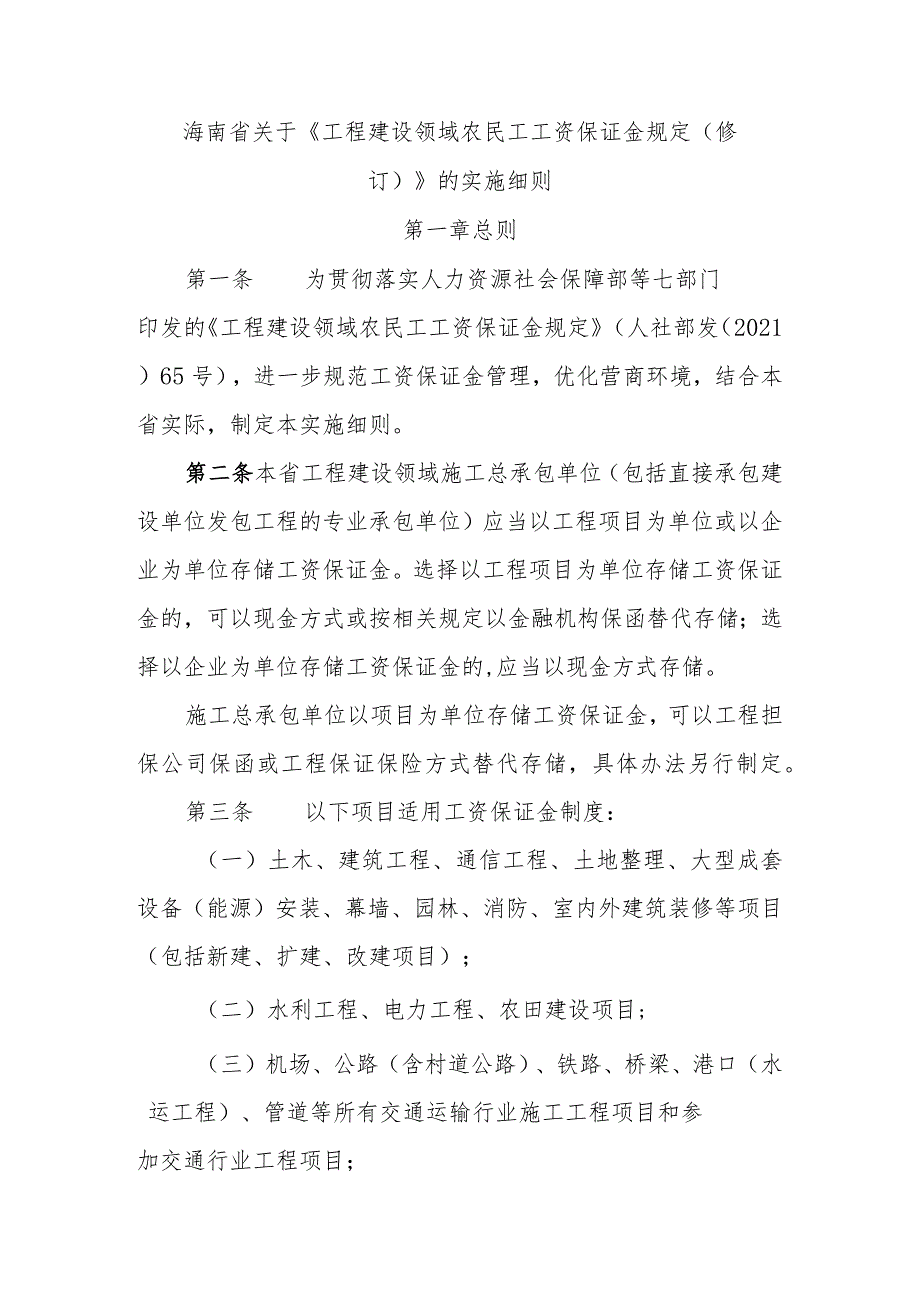 海南省关于《工程建设领域农民工工资保证金规定（修
订）》的实施细则
第一章总则
第一条 为贯彻落实人力资源社会保障部等七部门
印发的《工程建设领域农民工工资保证金规定》（人社部发（2021
）65 号），进一步规范工资保证金管理，优化营商环境，结合本
省实际，制定本实施细则。
第二条本省工程建设领域施工总承包单位（包括直接承包建
设单位发包工程的专业承包单位）应当以工程项目为单位或以企
业为单位存储工资保证金。选择以工程项目为单位存储工资保证
金的，可以现金方式或按相关规定以金融机构保函替代存储；选
择以企业为单位存储工资保证金的,应当以现金方式存储。
施工总承包单位以项目为单位存储工资保证金，可以工程担
保公司保函或工程保证保险方式替代存储，具体办法另行制定。
第三条 以下项目适用工资保证金制度：
（一）土木、建筑工程、通信工程、土地整理、大型成套
设备（能源）安装、幕墙、园林、消防、室内外建筑装修等项目
（包括新建、扩建、改建项目）；
（二）水利工程、电力工程、农田建设项目;
（三）机场、公路（含村道公路）、铁路、桥梁、港口（水
运工程）、管道等所有交通运输行业施工工程项目和参
加交通行业工程项目；